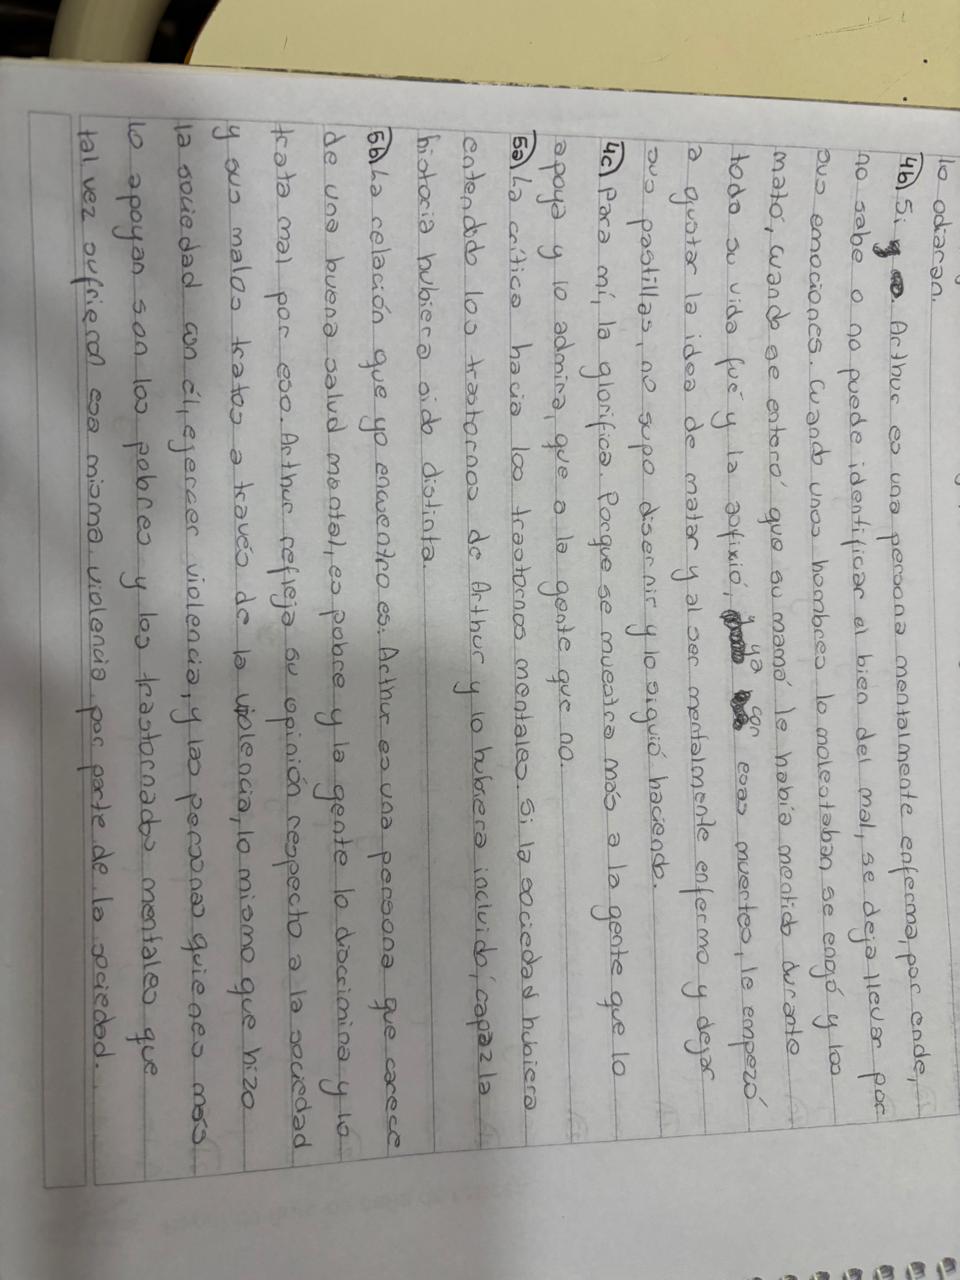 lo odiaran.
4b) Si. Arthur es una persona mentalmente enferma, por ende,
no sabe o no puede identificar el bien del mal, se deja llevar por
sus emociones. Cuando unos hombres lo molestaban, se enojó y los
mató, cuando se enteró que su mamá le había mentido durante
toda su vida fué y la asfixió, y ya con esas muertes, le empezó
a gustar la idea de matar y al ser mentalmente enfermo y dejar
sus pastillas, no supo disernir y lo siguió haciendo.
4c) Para mí, la glorifica Porque se muestra más a la gente que lo
apoya y lo admira, que a la gente que no.
5a) La crítica hacia los trastornos mentales. Si la sociedad hubiera
entendido los trastornos de Arthur y lo hubiera incluido, capaz la
historia hubiera sido distinta.
5b) La relación que yo encuentro es: Arthur es una persona que carece
de una buena salud mental, es pobre y la gente lo discrimina y lo
trata mal por eso. Arthur refleja su opinión respecto a la sociedad
y sus malos tratos a través de la violencia, lo mismo que hizo
la sociedad con él, ejercer violencia, y las personas quienes más
lo apoyan son los pobres y los trastornados mentales que
tal vez sufrieron esa misma violencia por parte de la sociedad.